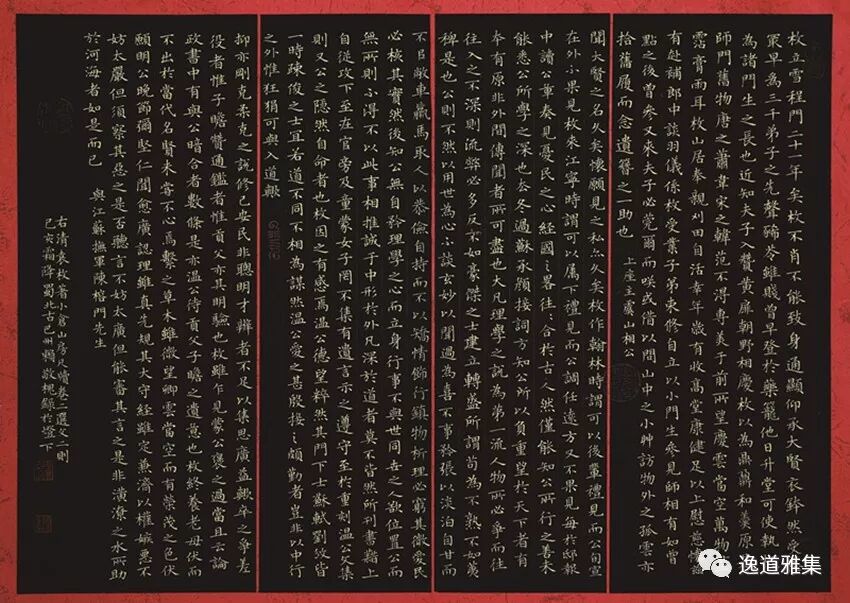 枚立雪程門二十一年矣枚不肖不能致身通顯仰承大賢衣鉢然受
眾早為三千弟子之先聲殤苓雖賤曾早登於藥籠他日升堂可使執
為諸門生之長也近知夫子入贊黃扉朝野相慶枚以為鼎鼐和羹原
師門舊物唐之蕭韋宋之韓范不得專美于前所望慶雲當空萬物
霑膏雨耳枚山居奉親刈田自活幸年歲有收高堂康健足以上慰
有赴補郎中談羽儀係枚受業子弟束修自立以小門生參見師相有如曾
點之後曾參又來夫子必莞爾而咲或借以問山中之小艸訪物外之孤雲亦
拾舊履而念遺簪之一助也 上座主虞山相公
聞大賢之名久矣懷願見之私尒久矣枚作翰林時謂可以後輩禮見而公旬宣
在外小果見枚来江寧時謂可以屬下禮見而公調任遠方又不果見每於邸報
中讀公章奏見憂民之心經國之畧往往合於古人然僅能知公所行之善未
能悉公所學之深也去冬過蘇永顏接詞方知公所以負重望於天下者有
本有原非外間傳聞者所可盡也大凡理學之說為第一流人物所必爭而往
往入之不深則流弊必多反不如豪傑之士建立轉盛所謂苟為不熟不如荑
稗是也公則不然以用世為心談玄妙以聞過為喜不事矜張以淡泊自甘而
不居敝車羸馬取人以恭儉自持而不以矯情飾行鎮物析理必窮其微愛民
必核其實然後知公無自矜理學之心而立身行事不與世同世之人欲位置公而
無所則小得不以此事相推誠于中形於外凡深於道者莫不皆然所刊書籍上
自從政下至在官旁及童蒙女子罔不集有遺言示之遵守至於重刻溫公文集
則又公之隱然自命者也枚因之有感焉溫公德望粹然其門下士蘇軾劉攽皆
一時疎俊之士耳右道不同不相為謀然溫公愛之甚殷接之頗勤者豈非以中行
之外惟狂狷可與入道歟
抑亦剛克柔克之說修己安民非聰明才辨者不足以集思廣益歟卒之爭差
役者惟子瞻贊通鑑者惟貢父亦其明驗也枚雖乍見蒙公褒之過當且云論
政書中有與公暗合者數條是亦溫公待貢父子瞻之遺意也枚終養老母伏而
不出於當代名賢未嘗不心焉繫之草木雖微望卿雲當空而有榮茂之色伏
願明公晚節彌堅仁聞愈廣認理雖真先規其大守經雖定兼濟以權嫉惡不
妨太嚴但須察其惡之是否聽言不妨太廣但能審其言之是非潢潦之水所助
於河海者如是而已 與江蘇撫軍陳榕門先生
右清袁枚著小倉山房尺牘卷二選父一則
己亥霜降蜀北古巴州賴敬規錄於燈下
逸道雅集